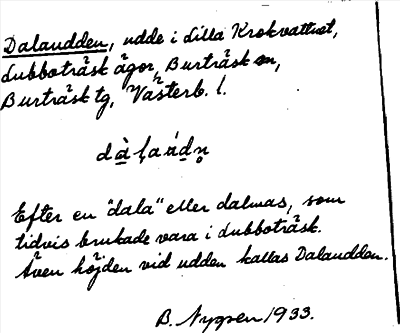 Dalaudden, udde i Lilla Krokvattnet,
Lubboträsk ägor, Burträsk sn,
Burträsk tg, Västerb. l.
Efter en "dala" eller dalmas, som
tidvis brukade vara i Lubboträsk.
Även höjden vid udden kallas Dalaudden.
B. Nygren 1933.